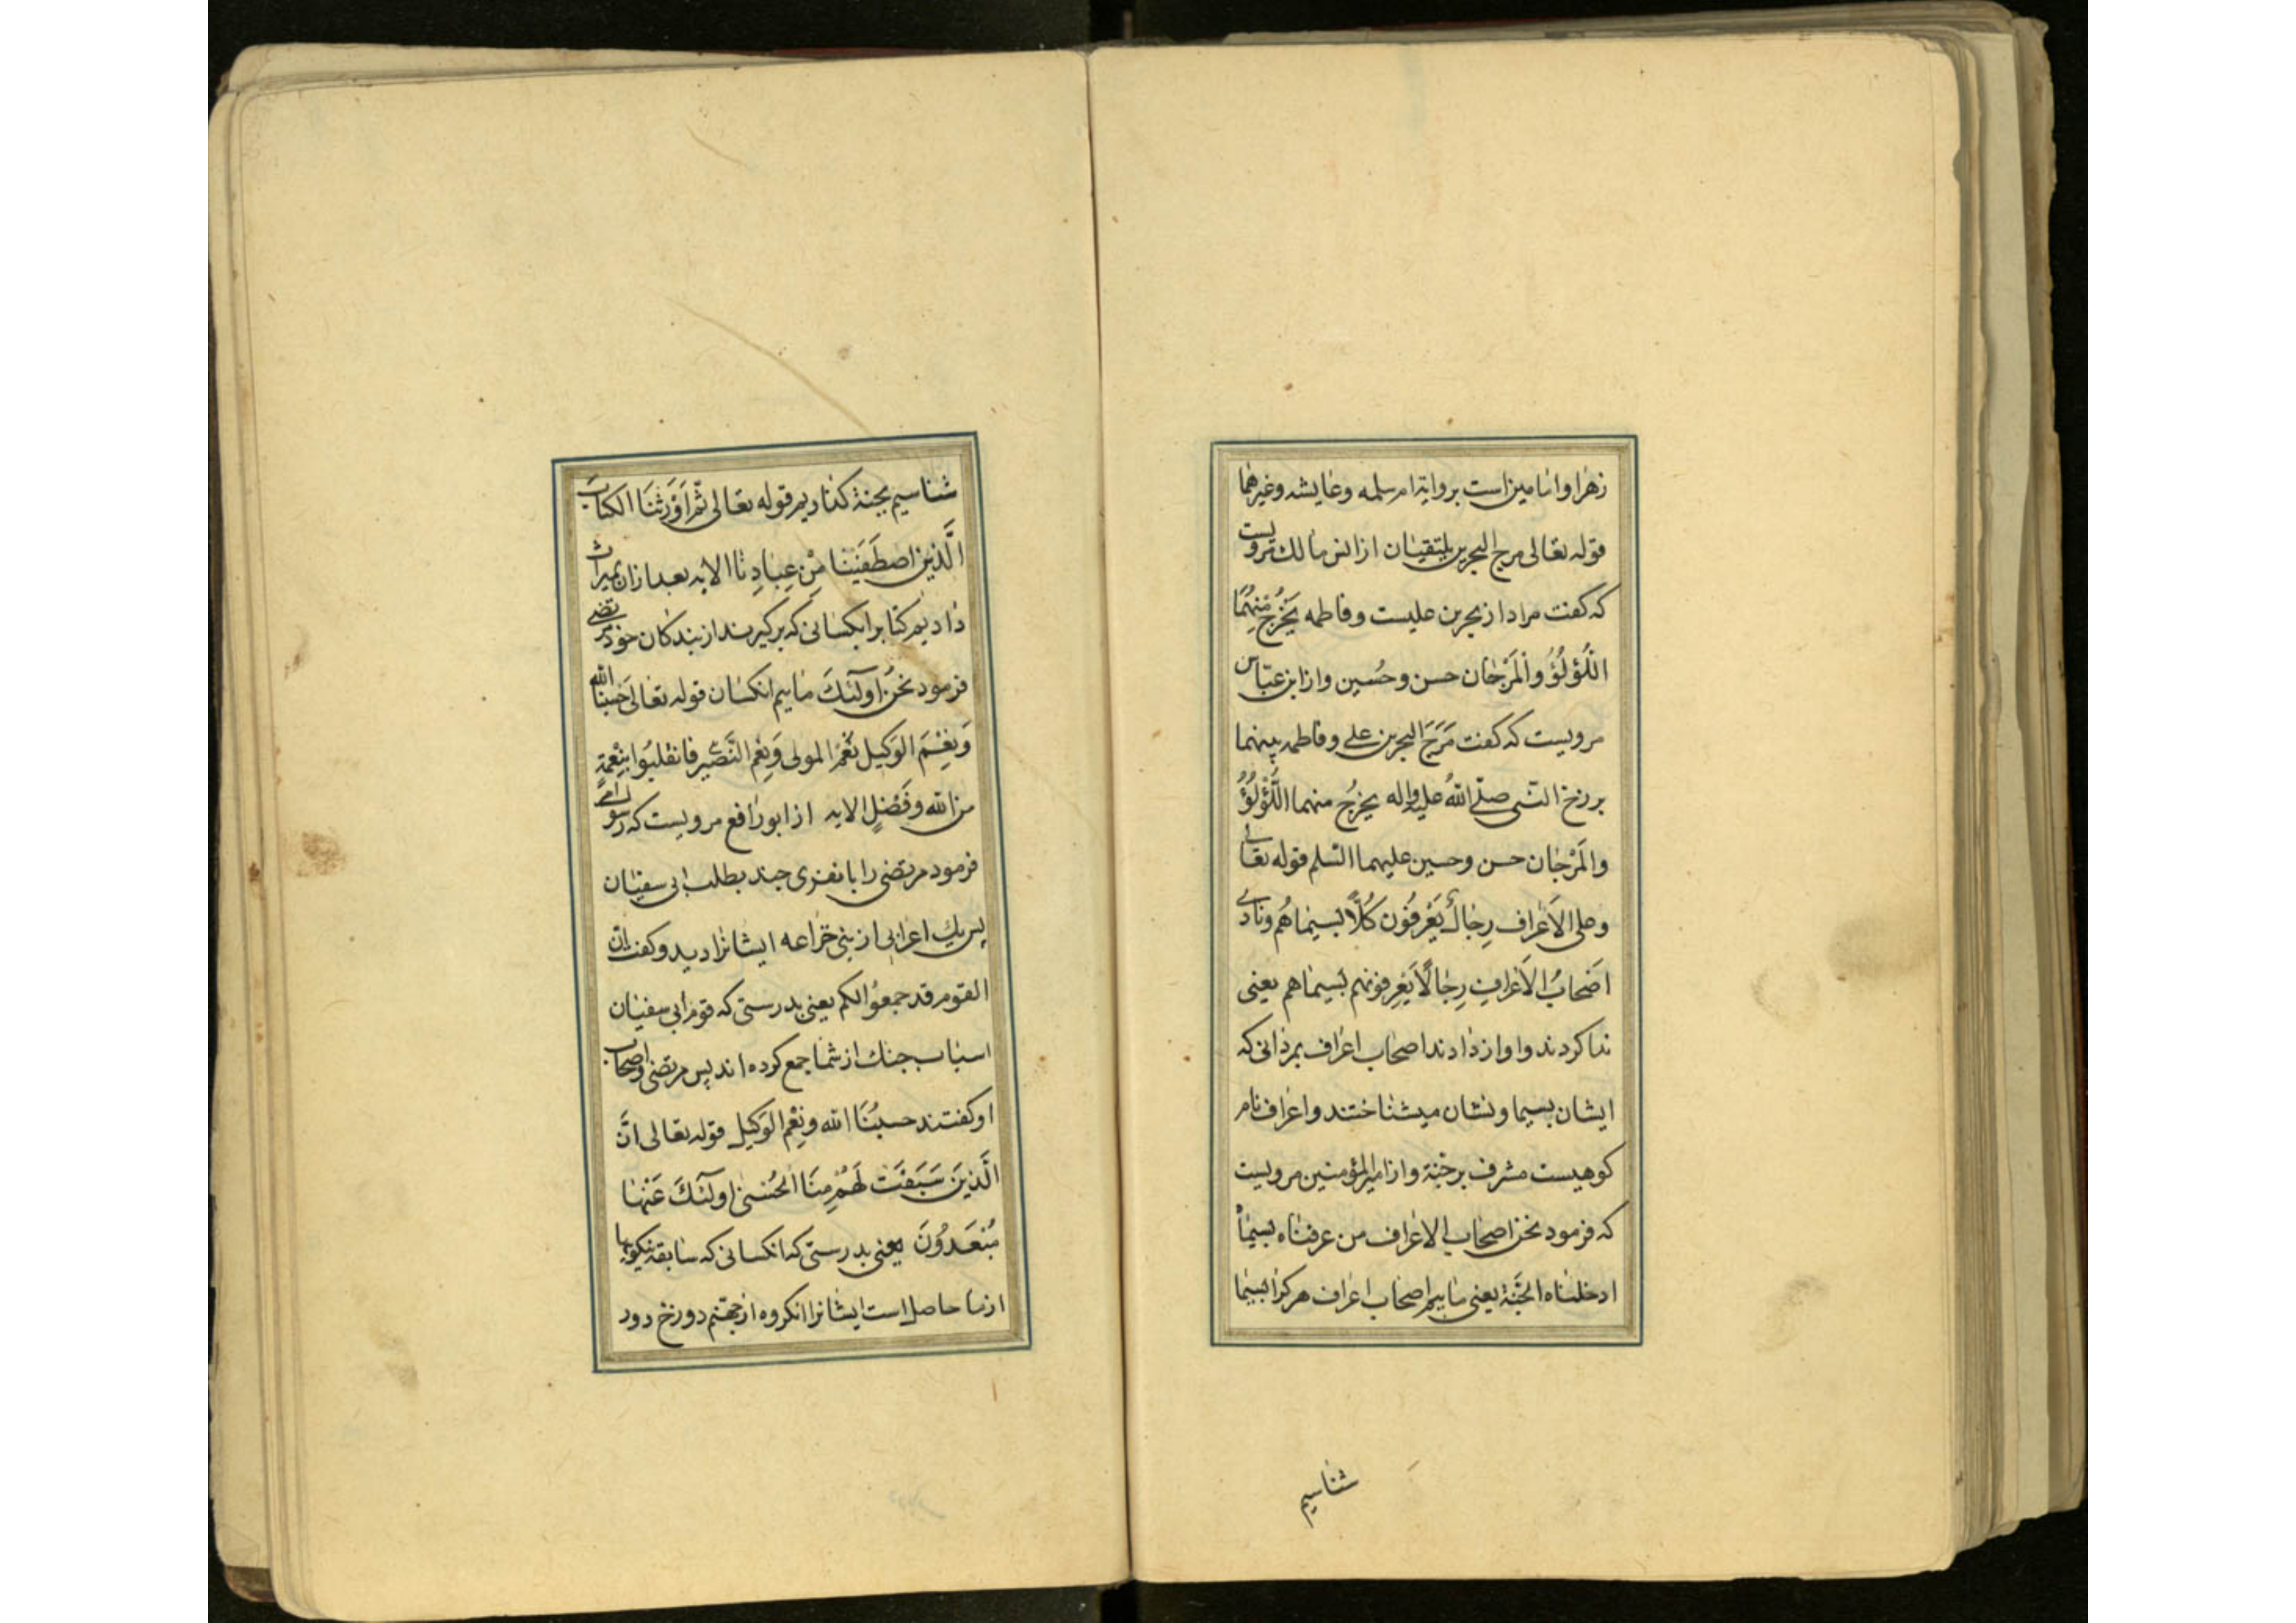 زهرا و امامین است بروایة ام سلمه و عایشه و غیرهما
قوله تعالی مرج البحرین یلتقیان از انس مالک مرویست
که کفت مراد از بحرین علیست و فاطمه یَخْرُجُ مِنْهُمَا
اللُّؤلُؤُ وَالْمَرْجَان حسن و حُسین و از ابن عبّاس
مرویست که کفت مَرَجَ البحرین علی و فاطمه بینهما
برزخ النبی صلّی اللهُ علیه واله یخرجُ منهما اللُّؤْلُؤُ
والمَرْجَان حسن و حسین علیهما السّلم قوله تعالی
و علی الاَعْراف رِجَالٌ یَعْرِفُون کُلًّا بسیماهُم و نادی
اَصْحَابُ الاَعْرافِ رِجَالًا یَعْرِفونهم بسیماهم یعنی
ندا کردند و اواز دادند اصحاب اعراف بمردانی که
ایشان بسیما و نشان میشناختند و اعراف نام
کوهیست مشرف بر جنة و از امیرالمؤمنین مرویست
که فرمود نحن اصحاب الاعراف من عرفناه بسیماه
ادخلناه الجَنَّة یعنی ماییم اصحاب اعراف هر کرا بسیما
شناسیم
شناسیم بجنة کذاریم قوله تعالی ثُمَّ اَوْرَثْنَا الکتابَ
الَّذین اصطَفَیْنَا مِنْ عِبَادِنَا الایه بعد ازان بمیراث
دادیم کتاب را بکسانی که برکیرند از بندکان خود مرتضی
فرمود نَحْنُ اولَٓئکَ ماییم انکسان قوله تعالی حَسْبُنَا الله
وَنِعْمَ الوَکیل نِعْمَ المولی وَنِعْمَ النَّصیر فانقلبُوا بِنِعْمَةٍ
من الله وفَضْلٍ الایه از ابورافع مرویست که رسول
فرمود مرتضی را با نفری چند بطلب ابی سفیان
پس یک اعرابی از بنی خزاعه ایشانرا دید و کفت انّ
القوم قد جمعوُا لکم یعنی بدرستی که قوم ابی سفیان
اسباب جنک از شما جمع کرده اند پس مرتضی و اصحاب
او کفتند حسبُنَا الله ونِعْمَ الوَکیل قوله تعالی انَّ
الَّذینَ سَبَقَتْ لَهُمْ مِنَّا الحُسْنیٰ اولَٓئکَ عَنْهَا
مُبْعَدُونَ یعنی بدرستی که انکسانی که سابقه نیکویها
از ما حاصل است ایشانرا انکروه از جهنّم دوزخ دور